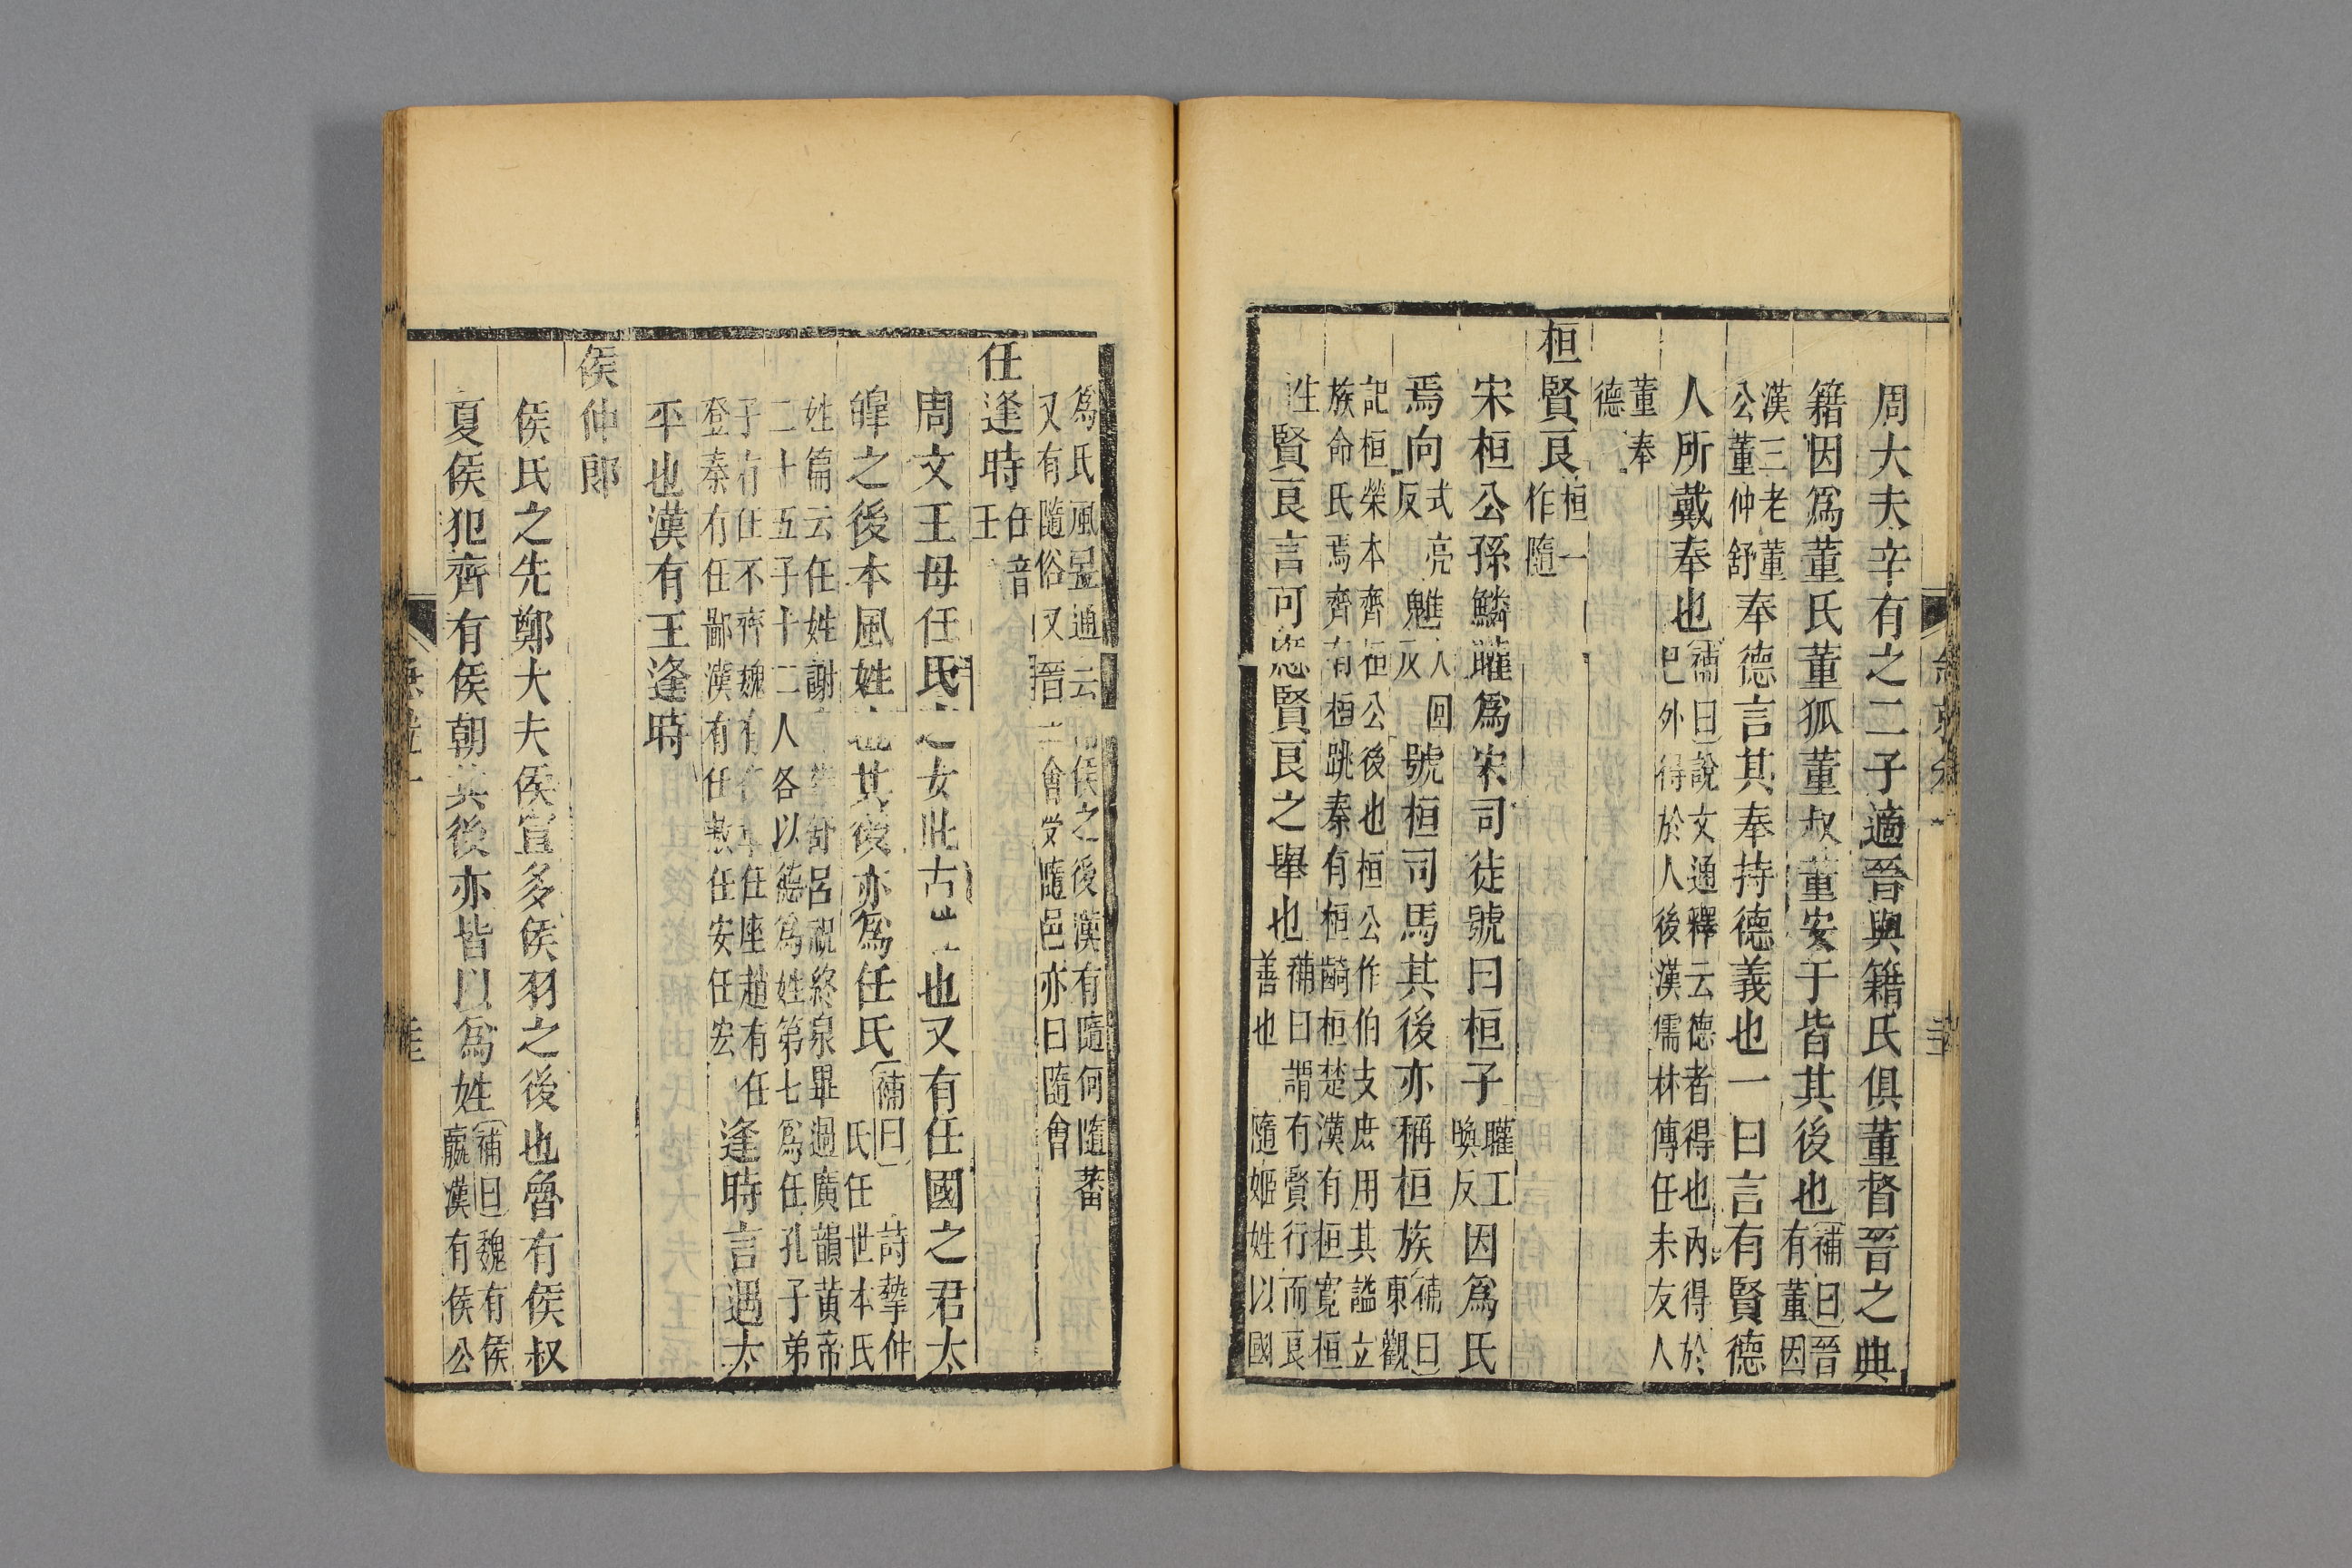 周大夫辛有之二子適晉與籍氏俱董督晉之典
籍因爲董氏董狐董叔董安于皆其後也補曰晉有董因
漢三老董公董仲舒奉德言其奉持德義也一曰言有賢德
人所戴奉也補曰說文通釋云德者得也內得於己外得於人後漢儒林傳任末友人
董奉德
桓賢良桓一作隨
宋桓公孫鱗矔爲宋司徒號曰桓子矔工喚反因爲氏
焉向式亮反魋人回反號桓司馬其後亦稱桓族補曰東觀
記桓榮本齊桓公後也桓公作伯支庶用其謚立族命氏焉齊有桓跳秦有桓齮桓楚漢有桓寬桓
生賢良言可應賢良之舉也補曰謂有賢行而良善也隨姬姓以國
爲氏風俗通云隨侯之後漢有隨何隨蕃又有隨俗又晉士會受隨邑亦曰隨會
任逢時任音王
周文王母任氏之女此古也又有任國之君太
皥之後本風姓也其後亦爲任氏補曰詩摯仲氏任世本氏
姓篇云任姓謝章舒呂祝終泉畢過廣韻黃帝二十五子十二人各以德爲姓第七爲任孔子弟
子有任不齊魏有任座趙有任登秦有任鄙漢有任敖任安任宏逢時言遇太
平也漢有王逢時
侯仲郎
侯氏之先鄭大夫侯宣多侯羽之後也魯有侯叔
夏侯犯齊有侯朝其後亦皆以爲姓補曰魏有侯嬴漢有侯公